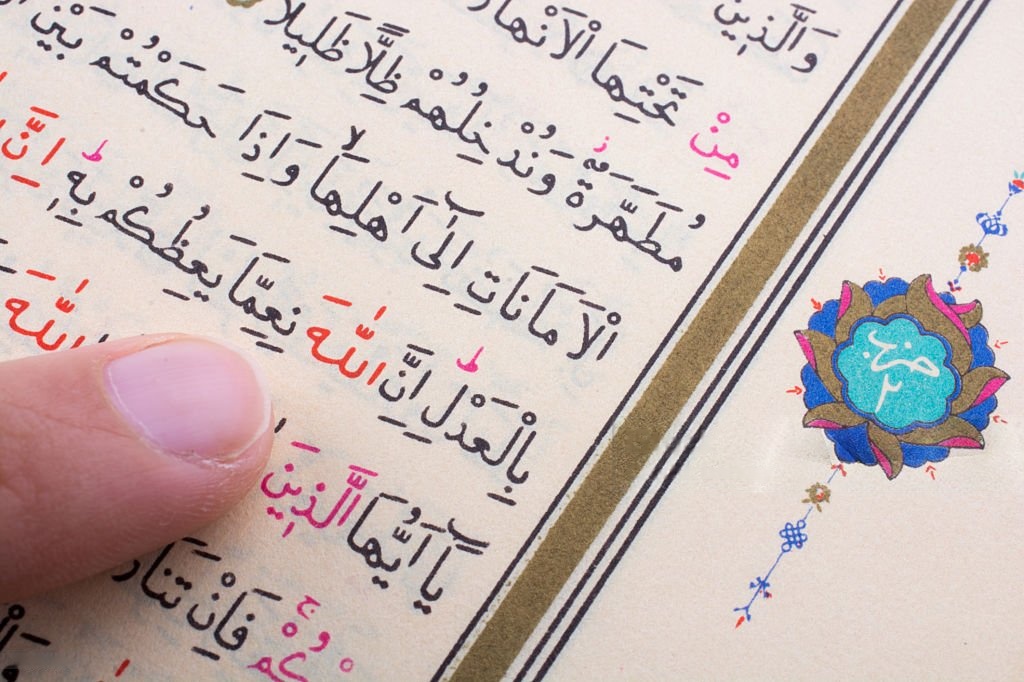 وَالَّذِينَ
مِنْ تَحْتِهَا الْاَنْهَارُ
مُطَهَّرَةٌ وَنُدْخِلُهُمْ ظِلًّا ظَلِيلًا
الْاَمَانَاتِ اِلٰٓى اَهْلِهَاۙ وَاِذَا حَكَمْتُمْ بَيْنَ
بِالْعَدْلِۜ اِنَّ اللّٰهَ نِعِمَّا يَعِظُكُمْ بِهۜ اِنَّ
اللّٰهَ
يَٓا اَيُّهَا الَّذِينَ
كُمْۚ فَاِنْ
حزب
٢